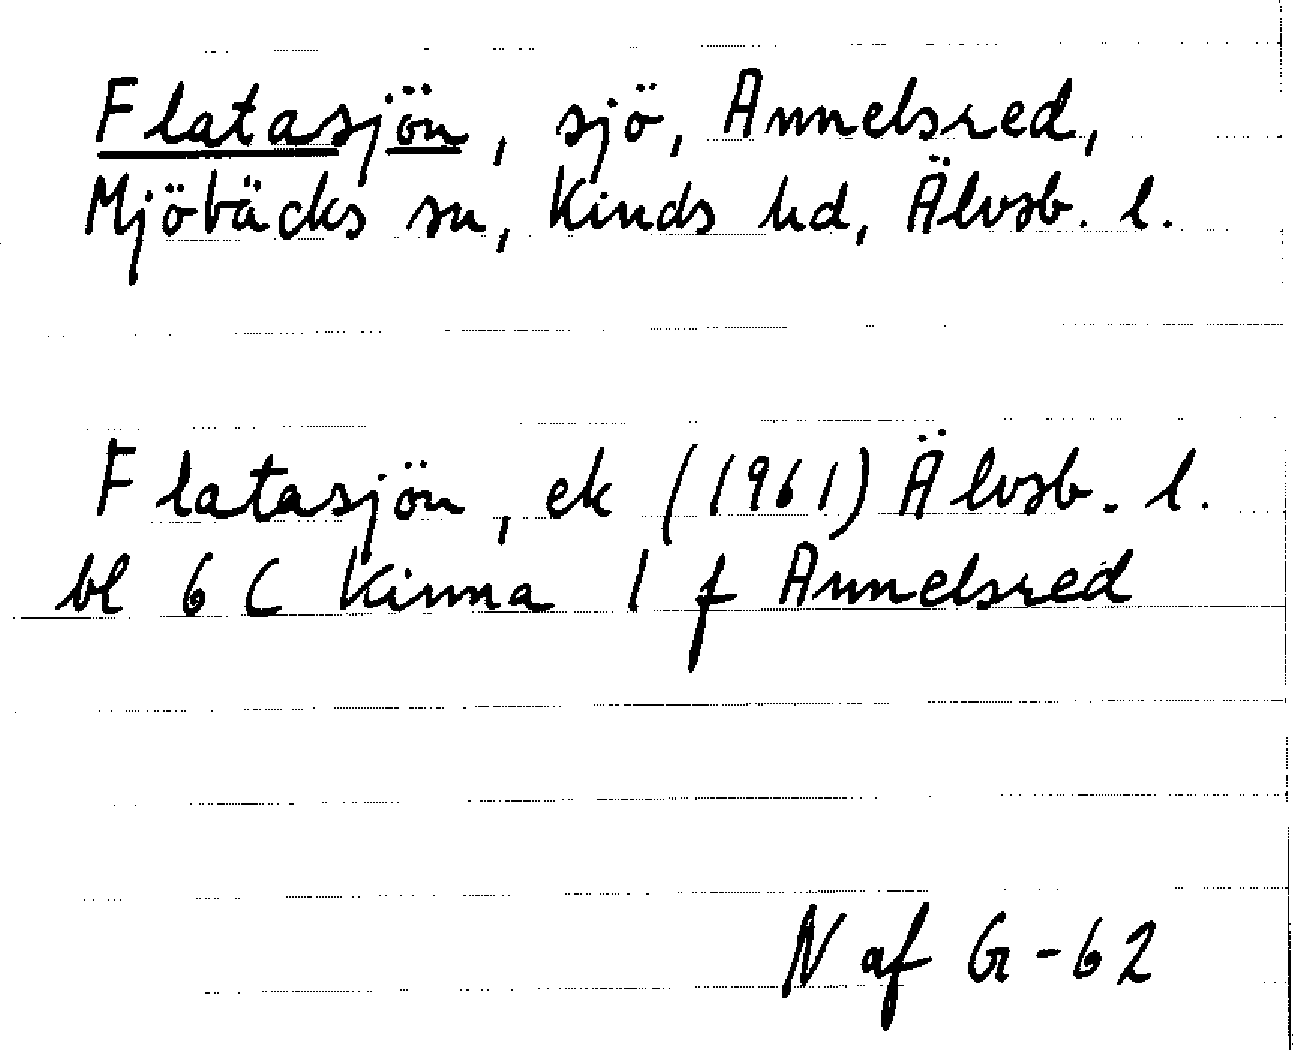 Flatasjön, sjö, Annelsred,
Mjöbäcks sn, Kinds hd, Älvsb. l.
Flatasjön, ek (1961) Älvsb. l.
bl 6 C Kinna 1 f Annelsred
N af G-62